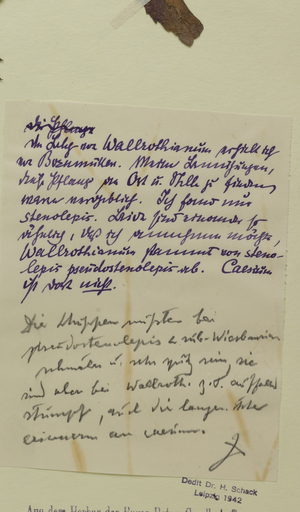 die Pflanze
der Beleg von Wallrothianum erhielt ich
von Bornmüller. Meine Bemühungen,
diese Pflanze an Ort u. Stelle zu finden,
waren vergeblich. Ich fand nur
stenolepis. Beide sind einander so
ähnlich, daß ich annehmen möchte,
Wallrothianum stammt von steno-
lepis pseudostenolepis ab. Caesium
ist dort nicht.
Die Schuppen müßten bei
pseudostenolepis
schmäler u. sehr spitz sein, sie
sind aber bei Wallroth. z. T. auffallend
stumpf, auch die langen
erinnern an caesium.
Dedit Dr. H. Schack
Leipzig 1942
Aus dem Herbar